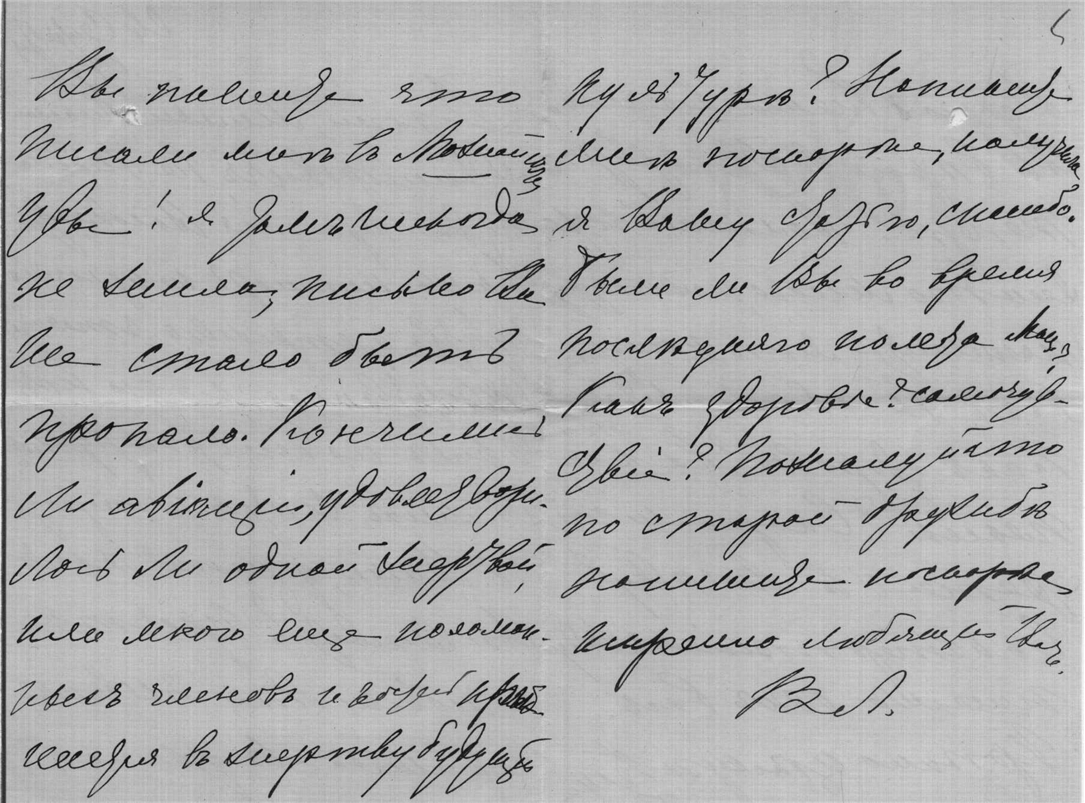 Вы пишите что
писали мнѣ въ Можайск
увы! я тамъ никогда
не жила, письмо Ва
ше стало быть
пропало. Кончились
ли авіаціи, удовлетвори-
лось ли одной жертвой,
или много еще поломан-
ныхъ членовъ и костей
въ жертву будущей
культурѣ? Напишите
мнѣ поскорѣе, получила
я Вашу спасибо.
Были ли Вы во время
послѣдняго полета
Какъ здоровье? самочув-
ствіе? Пожалуйста
по старой дружбѣ
напишите поскорѣе
искренно любящей Васъ.
В Л.